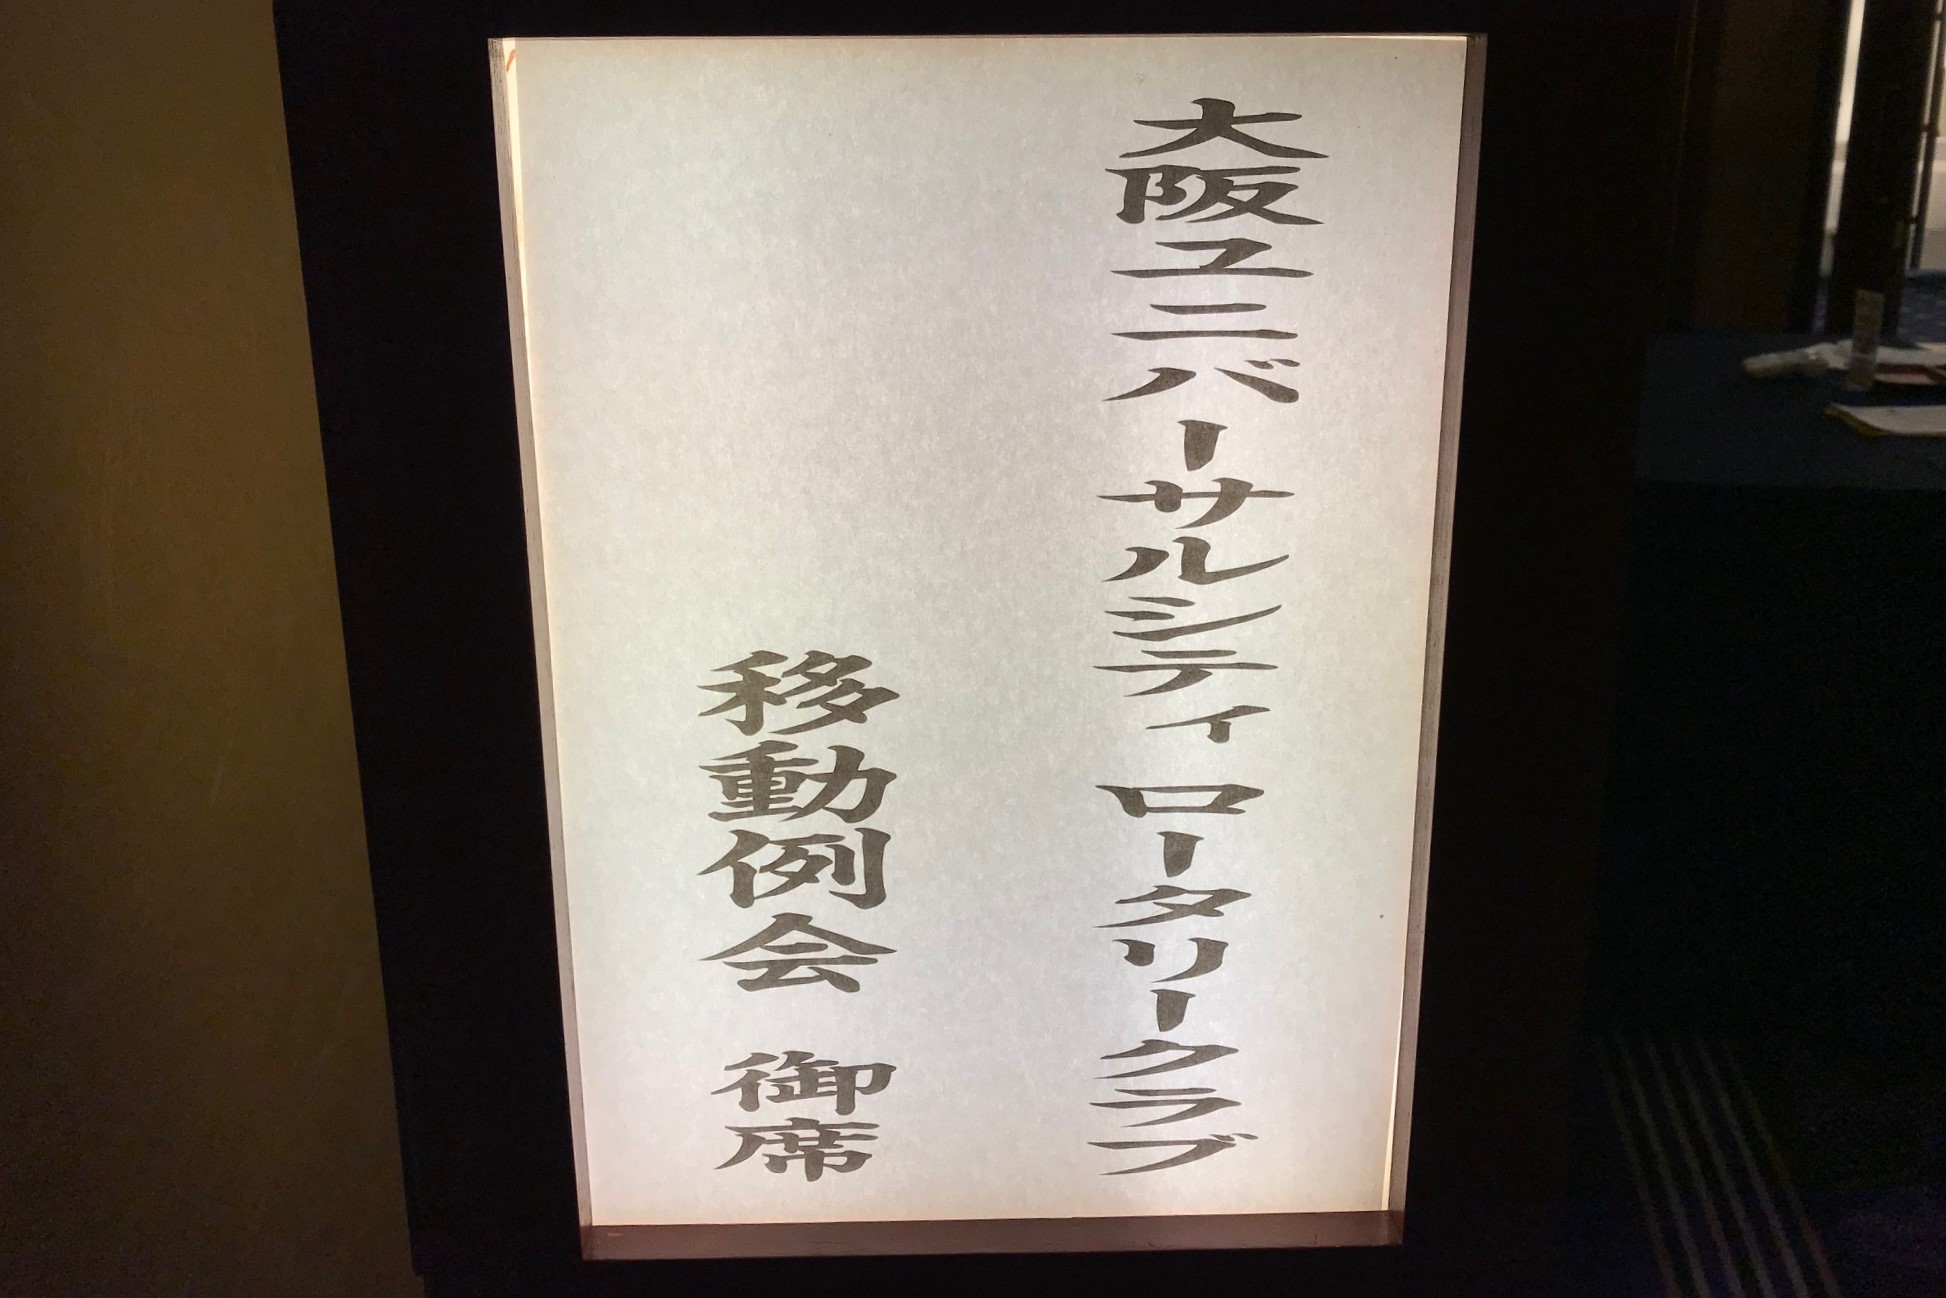 大阪ユニバーサルシティ ロータリークラブ
移動例会 御席